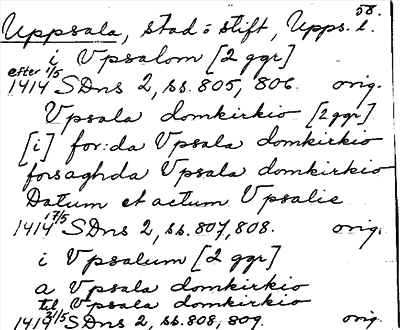 58.
Uppsala, stad o stift, Upps. l.
i Vpsalom [2 ggr]
efter 1/5
1414 SDns 2, ss. 805, 806. orig.
Vpsala domkirkio [2 ggr]
[i] for:da Vpsala domkirkio
forsaghda Vpsala domkirkio
Datum et actum Vpsalie
1414 17/5 SDns 2, ss. 807, 808. orig.
i Vpsalum [2 ggr]
a Vpsala domkirkio
til Vpsala domkirkio
1414 31/5 SDns 2, ss. 808, 809. orig.